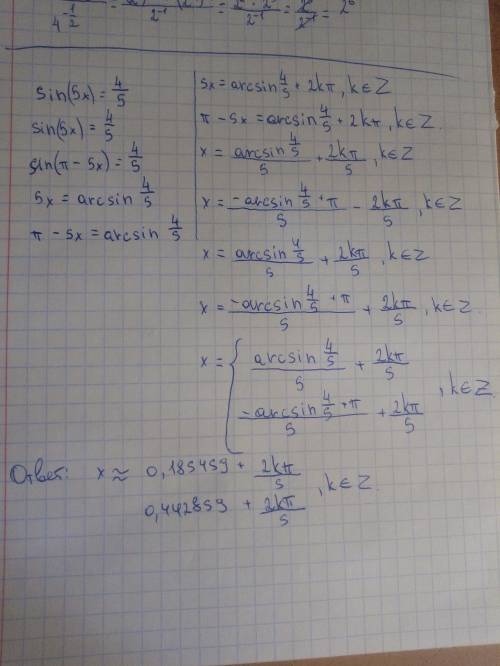 sin(5x) = 4/5
sin(5x) = 4/5
sin(π - 5x) = 4/5
5x = arcsin 4/5
π - 5x = arcsin 4/5
5x = arcsin 4/5 + 2kπ, k∈Z
π - 5x = arcsin 4/5 + 2kπ, k∈Z.
x = arcsin 4/5 / 5 + 2kπ/5, k∈Z
x = -arcsin 4/5 + π / 5 - 2kπ/5, k∈Z
x = arcsin 4/5 / 5 + 2kπ/5, k∈Z
x = -arcsin 4/5 + π / 5 + 2kπ/5, k∈Z.
x = { arcsin 4/5 / 5 + 2kπ/5
-arcsin 4/5 + π / 5 + 2kπ/5 , k∈Z.
Ответ: x ≈ 0,185459 + 2kπ/5
0,442859 + 2kπ/5 , k∈Z.